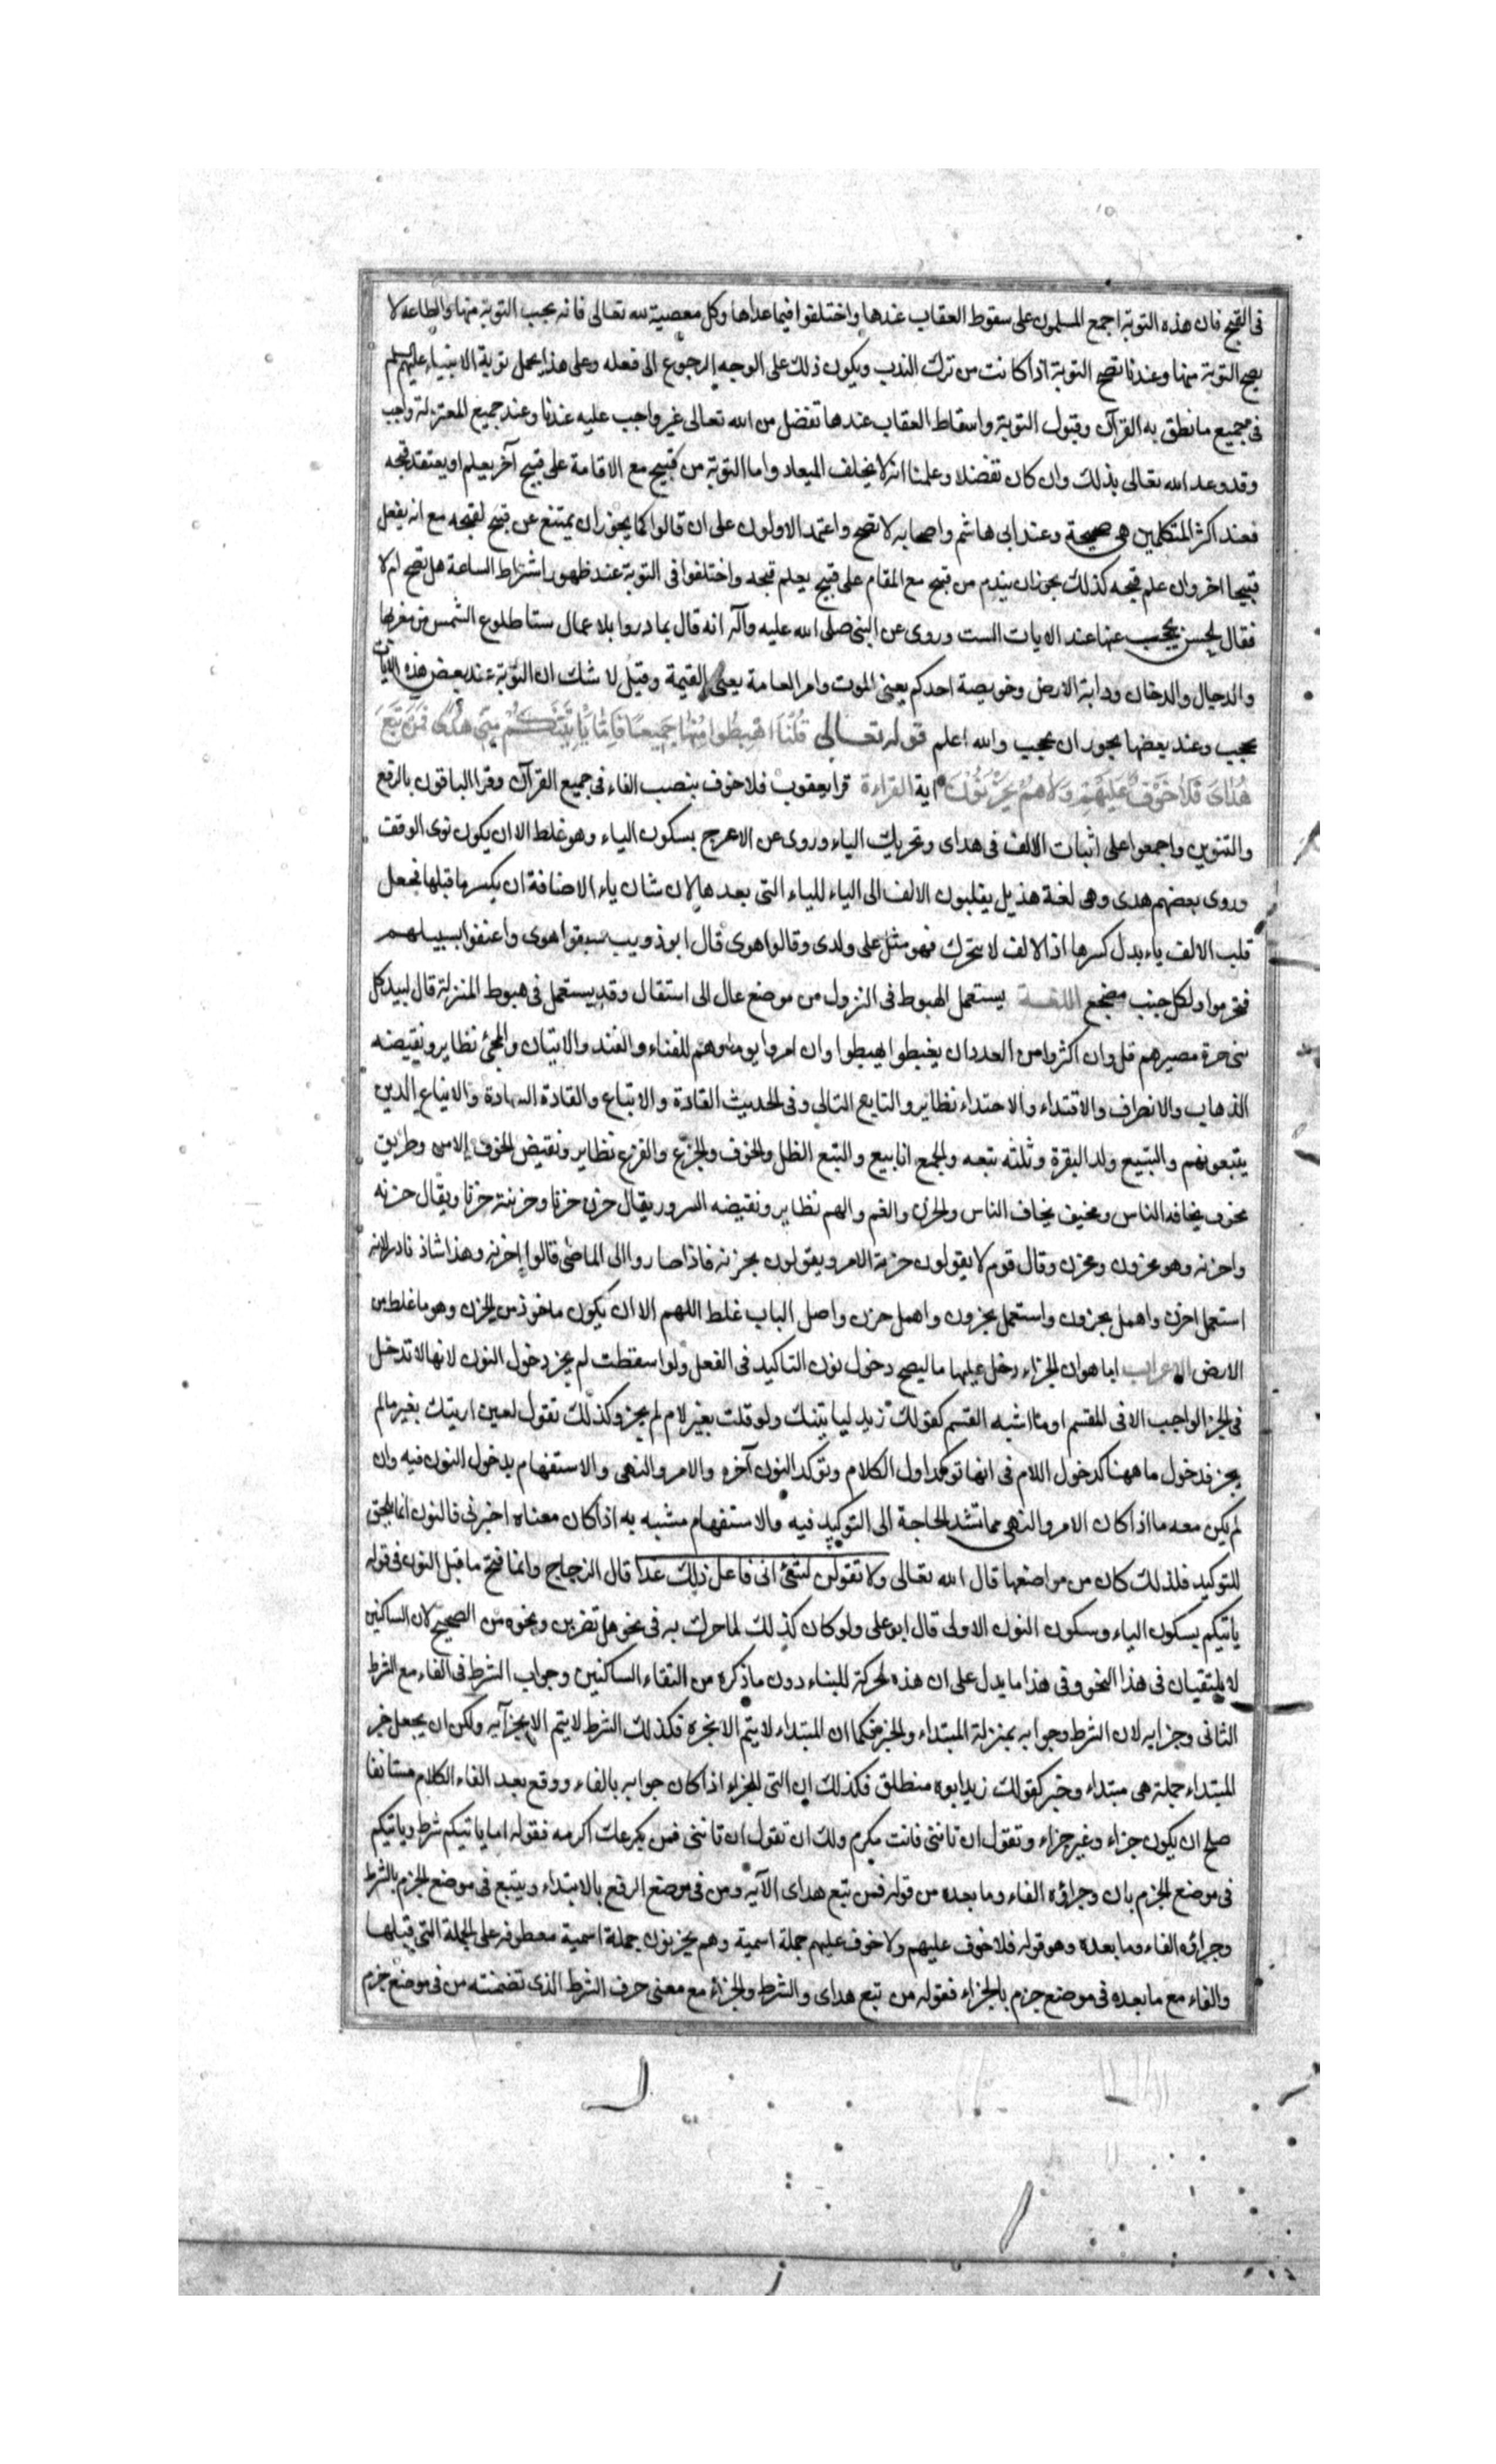 فى القبيح فان هذه التوبة اجمع المسلمون على سقوط العقاب عندها واختلفوا فيما عداها وكل معصية لله تعالى فانه يجب التوبة منها والطاعة لا
يصح التوبة منها وعندنا تصح التوبة اذا كانت من ترك الندب ويكون ذلك على الوجه الرجوع الى فعله وعلى هذا يحمل توبة الانبياء عليهم السلم
فى جميع ما نطق به القرآن وقبول التوبة واسقاط العقاب عندها تفضل من الله تعالى غير واجب عليه عندنا وعند جميع المعتزلة واجب
وقد وعد الله تعالى بذلك وان كان تفضلا وعلمنا انه لا يخلف الميعاد واما التوبة من قبيح مع الاقامة على قبيح آخر يعلم او يعتقد قبحه
فعند اكثر المتكلمين هى صحيحة وعند ابى هاشم واصحابه لا تصح واعتمد الاولون على ان قالوا كما يجوز ان يمتنع عن قبيح لقبحه مع انه يفعل
قبيحا اخر وان علم قبحه كذلك يجوز ان يندم من قبيح مع المقام على قبيح يعلم قبحه واختلفوا فى التوبة عند ظهور اشراط الساعة هل تصح ام لا
فقال لحسن يحجب عنها عند الايات الست وروى عن النبى صلى الله عليه وآله انه قال بادروا بلاعمال ستا طلوع الشمس من مغربها
والدجال والدخان ودابة الارض وخويصة احدكم يعنى الموت وامر العامة يعنى القيمة وقيل لا شك ان التوبة عند بعض هذه الايات
يحجب وعند بعضها يجوز ان يحجب والله اعلم قوله تعالى قُلْنَا اهْبِطُوا مِنْهَا جَمِيعًا فَاِمَّا يَأْتِيَنَّكُمْ مِنِّى هُدًى فَمَنْ تَبِعَ
هُدَاىَ فَلَا خَوْفٌ عَلَيْهِمْ وَلَا هُمْ يَحْزَنُونَ اية القراءة قرا يعقوب فلا خوف بنصب الفاء فى جميع القرآن وقرا الباقون بالرفع
والتنوين واجمعوا على اثبات الالف فى هداى وتحريك الياء وروى عن الاعرج بسكون الياء وهو غلط الا ان يكون نوى الوقف
وروى بعضهم هدى وهى لغة هذيل يقلبون الالف الى الياء للياء التى بعدها لان شان ياء الاضافة ان يكسر ما قبلها فجعل
قلب الالف ياء بدل كسرها اذ الالف لا يتحرك فهو مثل على ولدى وقالوا هوى قال ابو ذويب سبقوا هوى واعنفوا لسبيلهم
فتخرموا ولكل جنب مضجع اللغة يستعمل الهبوط فى النزول من موضع عال الى استفال وقد يستعمل فى هبوط المنزلة قال لبيد كل
بنى حرة مصيرهم قل وان اكثروا من العدد ان يغبطوا يهبطوا وان امروا يوما فهم للفناء والفند والاتيان والمجئ نظاير ونقيضه
الذهاب والانصراف والاقتداء والاحتذاء نظاير والتابع التالى وفى الحديث القادة والاتباع والقادة السادة والاتباع الذين
يتبعونهم والتبيع ولد البقرة وثلثه تبعه والجمع اتابيع والتبع الظل والخوف والجزع والفزع نظاير ونقيض الخوف الامن وطريق
مخوف يخافه الناس ومخيف يخاف الناس والحزن والغم والهم نظاير ونقيضه السرور يقال حزن حزنا وحزينة حزنا ويقال حزنه
واحزنه وهو محزون ومحزن وقال قوم لا يقولون حزنه الامر ويقولون يحزنه فاذا صاروا الى الماضى قالوا احزنه وهذا شاذ نادر لانه
استعمل احزن واهمل يحزون واستعمل يحزون واهمل حزن واصل الباب غلط اللهم الا ان يكون ماخوذ من الحزن وهو ما غلظ من
الارض الاعراب اما هو ان الجزاء دخل عليها ما ليصح دخول نون التاكيد فى الفعل ولو اسقطت لم يجز دخول النون لانها لا تدخل
فى الجز الواجب الا فى القسم او ما اشبه القسم كقولك زيد لياتينك ولو قلت بغير لام لم يجز وكذلك تقول لعين اريتك بغير ما لم
يجز فدخول ما ههنا كدخول اللام فى انها توكد اول الكلام وتوكد النون آخره والامر والنهى والاستفهام يدخول النون فيه وان
لم يكن معه ما اذا كان الامر والنهى مما تشتد الحاجة الى التوكيد فيه والاستفهام مشبه به اذا كان معناه اخبرنى فالنون انما يلحق
للتوكيد فلذلك كان من مواضعها قال الله تعالى ولا تقولن لشئ انى فاعل ذلك غدا قال الزجاج وانما فتح ما قبل النون فى قوله
ياتيكم بسكون الياء وسكون النون الاولى قال ابو على ولو كان كذلك لما حرك به فى نحو هل تضربن ونحوه من الصحيح لان الساكنين
لا يلتقيان فى هذا النحو وفى هذا ما يدل على ان هذه لحركة للبناء دون ما ذكره من التقاء الساكنين وجواب الشرط فى الفاء مع الشرط
الثانى وجزايه لان الشرط وجوابه بمنزلة المبتداء والخبر فكما ان المبتداء لا يتم الا بخبره فكذلك الشرط لا يتم الا بجزآيه ولكن ان يجعل خبر
المبتداء جملة هى مبتداء وخبر كقولك زيد ابوه منطلق فكذلك ان التى للجزاء اذا كان جوابه بالفاء ووقع بعد الفاء الكلام مستانفا
صلح ان يكون جزاء وغير جزاء وتقول ان تاتنى فانت مكرم ولك ان تقول ان تاتنى فمن يكرمك اكرمه فقوله اما ياتيكم شرط وياتيكم
فى موضع الجزم بان وجزاؤه الفاء وما بعده من قوله فمن تبع هداى الآية ومن فى موضع الرفع بالابتداء وتبع فى موضع الجزم بالشرط
وجزاؤه الفاء وما بعده وهو قوله فلا خوف عليهم ولا خوف عليهم جملة اسمية وهم يحزنون جملة اسمية معطوفه على الجملة التى قبلها
والفاء مع ما بعده فى موضع جزم بالجزاء فقوله من تبع هداى والشرط والجزاء مع معنى حرف الشرط الذى تضمنته من فى موضع جزم